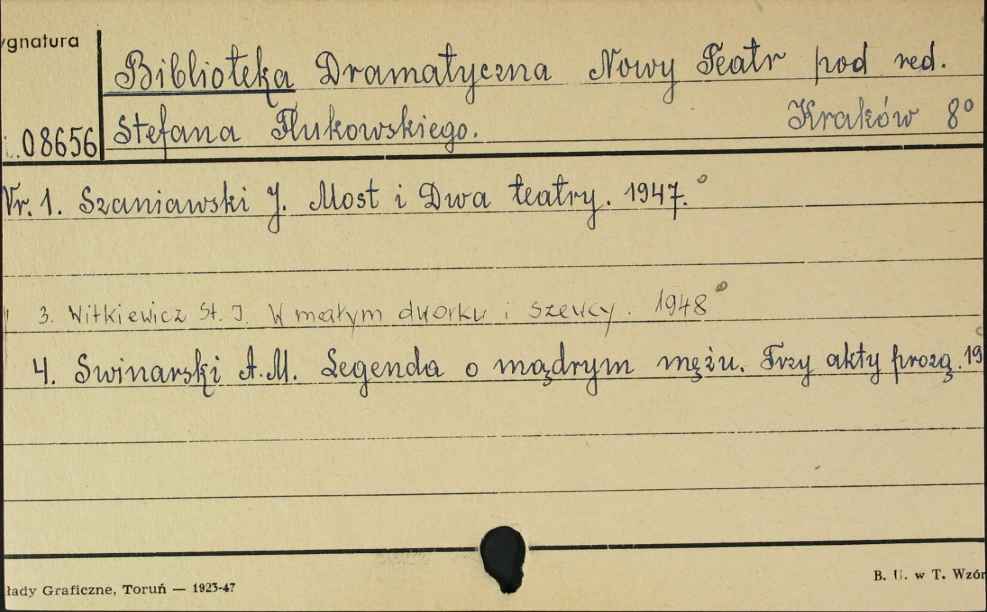 ygnatura
Biblioteka Dramatyczna Nowy Teatr pod red.
08656 Stefana Flukowskiego. Kraków 8°
Nr. 1. Szaniawski J. Most i Dwa teatry. 1947.
3. Witkiewicz St. I. W małym dworku i szewcy. 1948
4. Swinarski A.M. Legenda o mądrym mężu. Trzy akty prozą. 19
łady Graficzne, Toruń — 1923-47
B. U. w T. Wzór